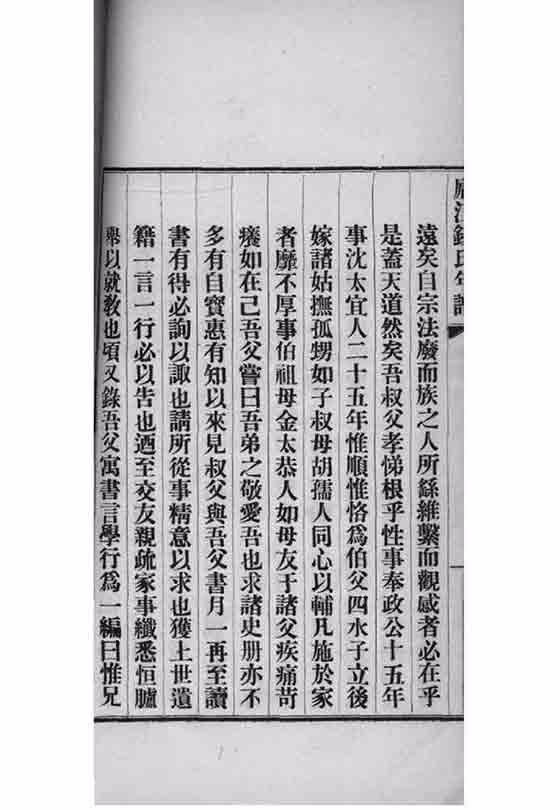 廬江錢氏年譜
遠矣自宗法廢而族之人所繇維繫而觀感者必在乎
是蓋天道然矣吾叔父孝悌根乎性事奉政公十五年
事沈太宜人二十五年惟順惟恪爲伯父四水子立後
嫁諸姑撫孤甥如子叔母胡孺人同心以輔凡施於家
者靡不厚事伯祖母金太恭人如母友于諸父疾痛苛
癢如在己吾父嘗曰吾弟之敬愛吾也求諸史册亦不
多有自寳惠有知以來見叔父與吾父書月一再至讀
書有得必詢以諏也請所從事精意以求也獲上世遺
籍一言一行必以告也迺至交友親疏家事纖悉恒臚
舉以就敎也頃又錄吾父寓書言學行爲一編曰惟兄
一